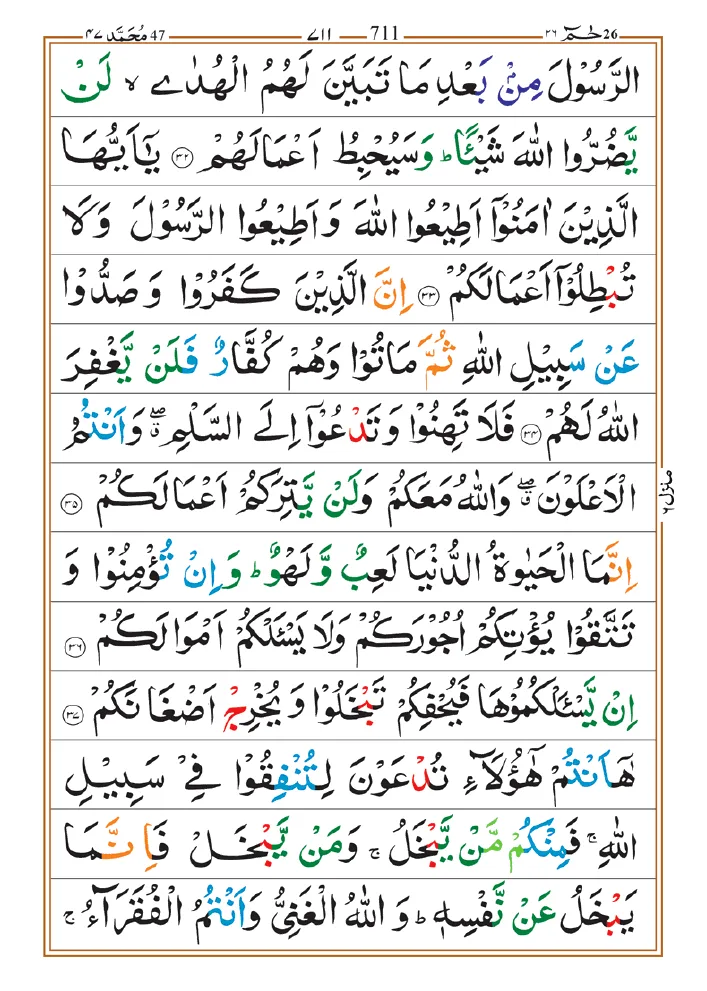 محمد ٤٧ 47 ٧١١ 711 حٰمٓ ٢٦ 26
الرَّسُوْلَ مِنْۢ بَعْدِ مَا تَبَيَّنَ لَهُمُ الْهُدٰىۙ لَنْ
يَّضُرُّوا اللّٰهَ شَيْـًٔاؕ وَسَيُحْبِطُ اَعْمَالَهُمْ ﴿۳۲﴾ يٰۤاَيُّهَا
الَّذِيْنَ اٰمَنُوْۤا اَطِيْعُوا اللّٰهَ وَاَطِيْعُوا الرَّسُوْلَ وَلَا
تُبْطِلُوْۤا اَعْمَالَكُمْ ﴿۳۳﴾ اِنَّ الَّذِيْنَ كَفَرُوْا وَصَدُّوْا
عَنْ سَبِيْلِ اللّٰهِ ثُمَّ مَاتُوْا وَهُمْ كُفَّارٌ فَلَنْ يَّغْفِرَ
اللّٰهُ لَهُمْ ﴿۳۴﴾ فَلَا تَهِنُوْا وَتَدْعُوْۤا اِلَى السَّلْمِ ۖۗ وَاَنْتُمُ
الْاَعْلَوْنَ ۖۗ وَاللّٰهُ مَعَكُمْ وَلَنْ يَّتِرَكُمْ اَعْمَالَكُمْ ﴿۳۵﴾
اِنَّمَا الْحَيٰوةُ الدُّنْيَا لَعِبٌ وَّلَهْوٌؕ وَاِنْ تُؤْمِنُوْا وَ
تَتَّقُوْا يُؤْتِكُمْ اُجُوْرَكُمْ وَلَا يَسْـَٔلْكُمْ اَمْوَالَكُمْ ﴿۳۶﴾
اِنْ يَّسْـَٔلْكُمُوْهَا فَيُحْفِكُمْ تَبْخَلُوْا وَيُخْرِجْ اَضْغَانَكُمْ ﴿۳۷﴾
هٰۤاَنْتُمْ هٰۤؤُلَآءِ تُدْعَوْنَ لِتُنْفِقُوْا فِيْ سَبِيْلِ
اللّٰهِۚ فَمِنْكُمْ مَّنْ يَّبْخَلُۚ وَمَنْ يَّبْخَلْ فَاِنَّمَا
يَبْخَلُ عَنْ نَّفْسِهٖؕ وَاللّٰهُ الْغَنِيُّ وَاَنْتُمُ الْفُقَرَآءُۚ
منزل ٦